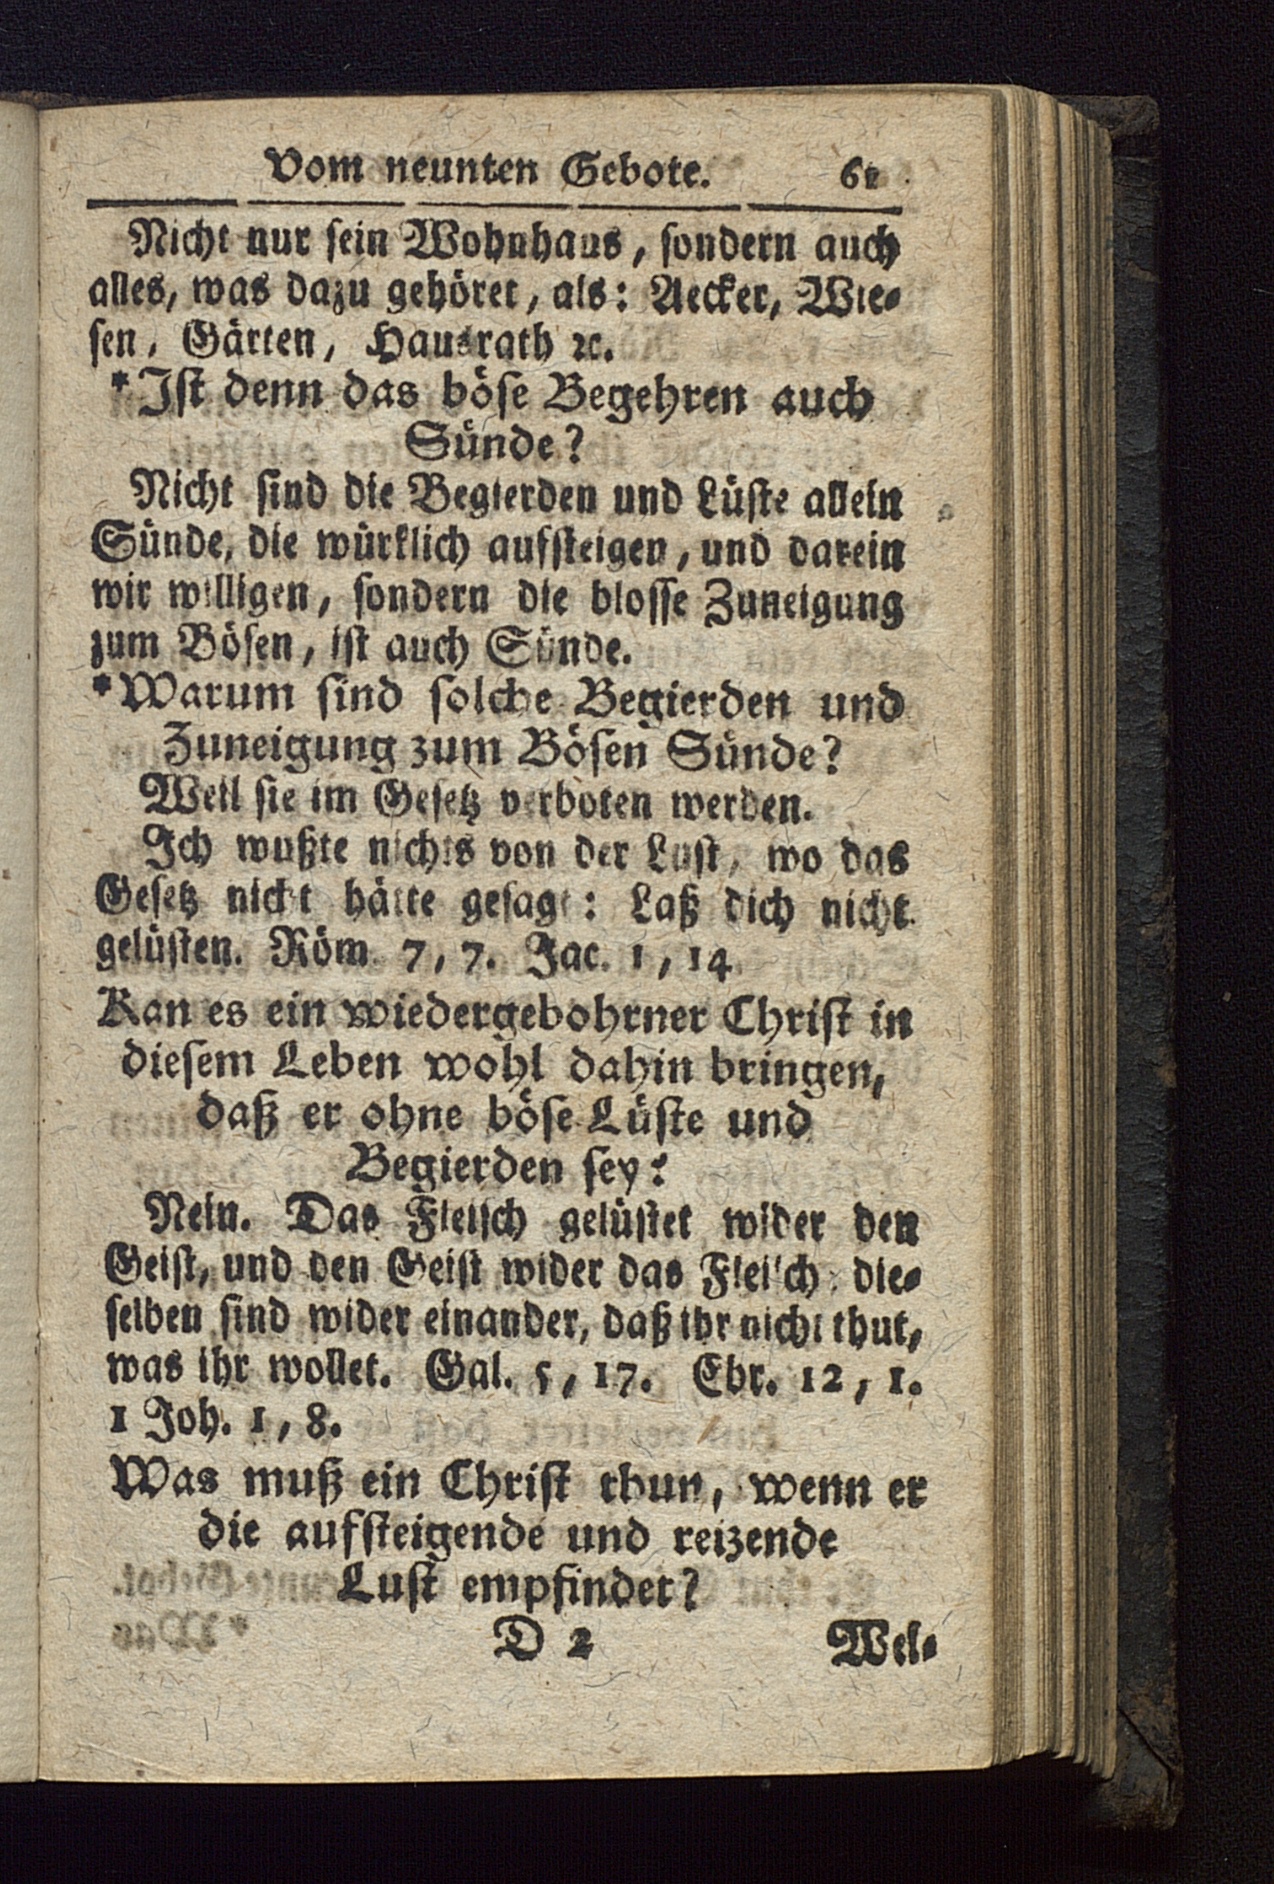 Vom neunten Gebote. 61
Nicht nur sein Wohnhaus, sondern auch
alles, was dazu gehöret, als: Aecker, Wie-
sen, Gärten, Hausrath ꝛc.
* Ist denn das böse Begehren auch
Sünde?
Nicht sind die Begierden und Lüste allein
Sünde, die würklich aufsteigen, und darein
wir willigen, sondern die blosse Zuneigung
zum Bösen, ist auch Sünde.
* Warum sind solche Begierden und
Zuneigung zum Bösen Sünde?
Weil sie im Gesetz verboten werden.
Ich wußte nichts von der Lust, wo das
Gesetz nicht hätte gesagt: Laß dich nicht
gelüsten. Röm. 7, 7. Jac. 1, 14.
Kan es ein wiedergebohrner Christ in
diesem Leben wohl dahin bringen,
daß er ohne böse Lüste und
Begierden sey?
Nein. Das Fleisch gelüstet wider den
Geist, und den Geist wider das Fleisch: die-
selben sind wider einander, daß ihr nicht thut,
was ihr wollet. Gal. 5, 17. Ebr. 12, 1.
1 Joh. 1, 8.
Was muß ein Christ thun, wenn er
die aufsteigende und reizende
Lust empfindet?
D 2 Wel-